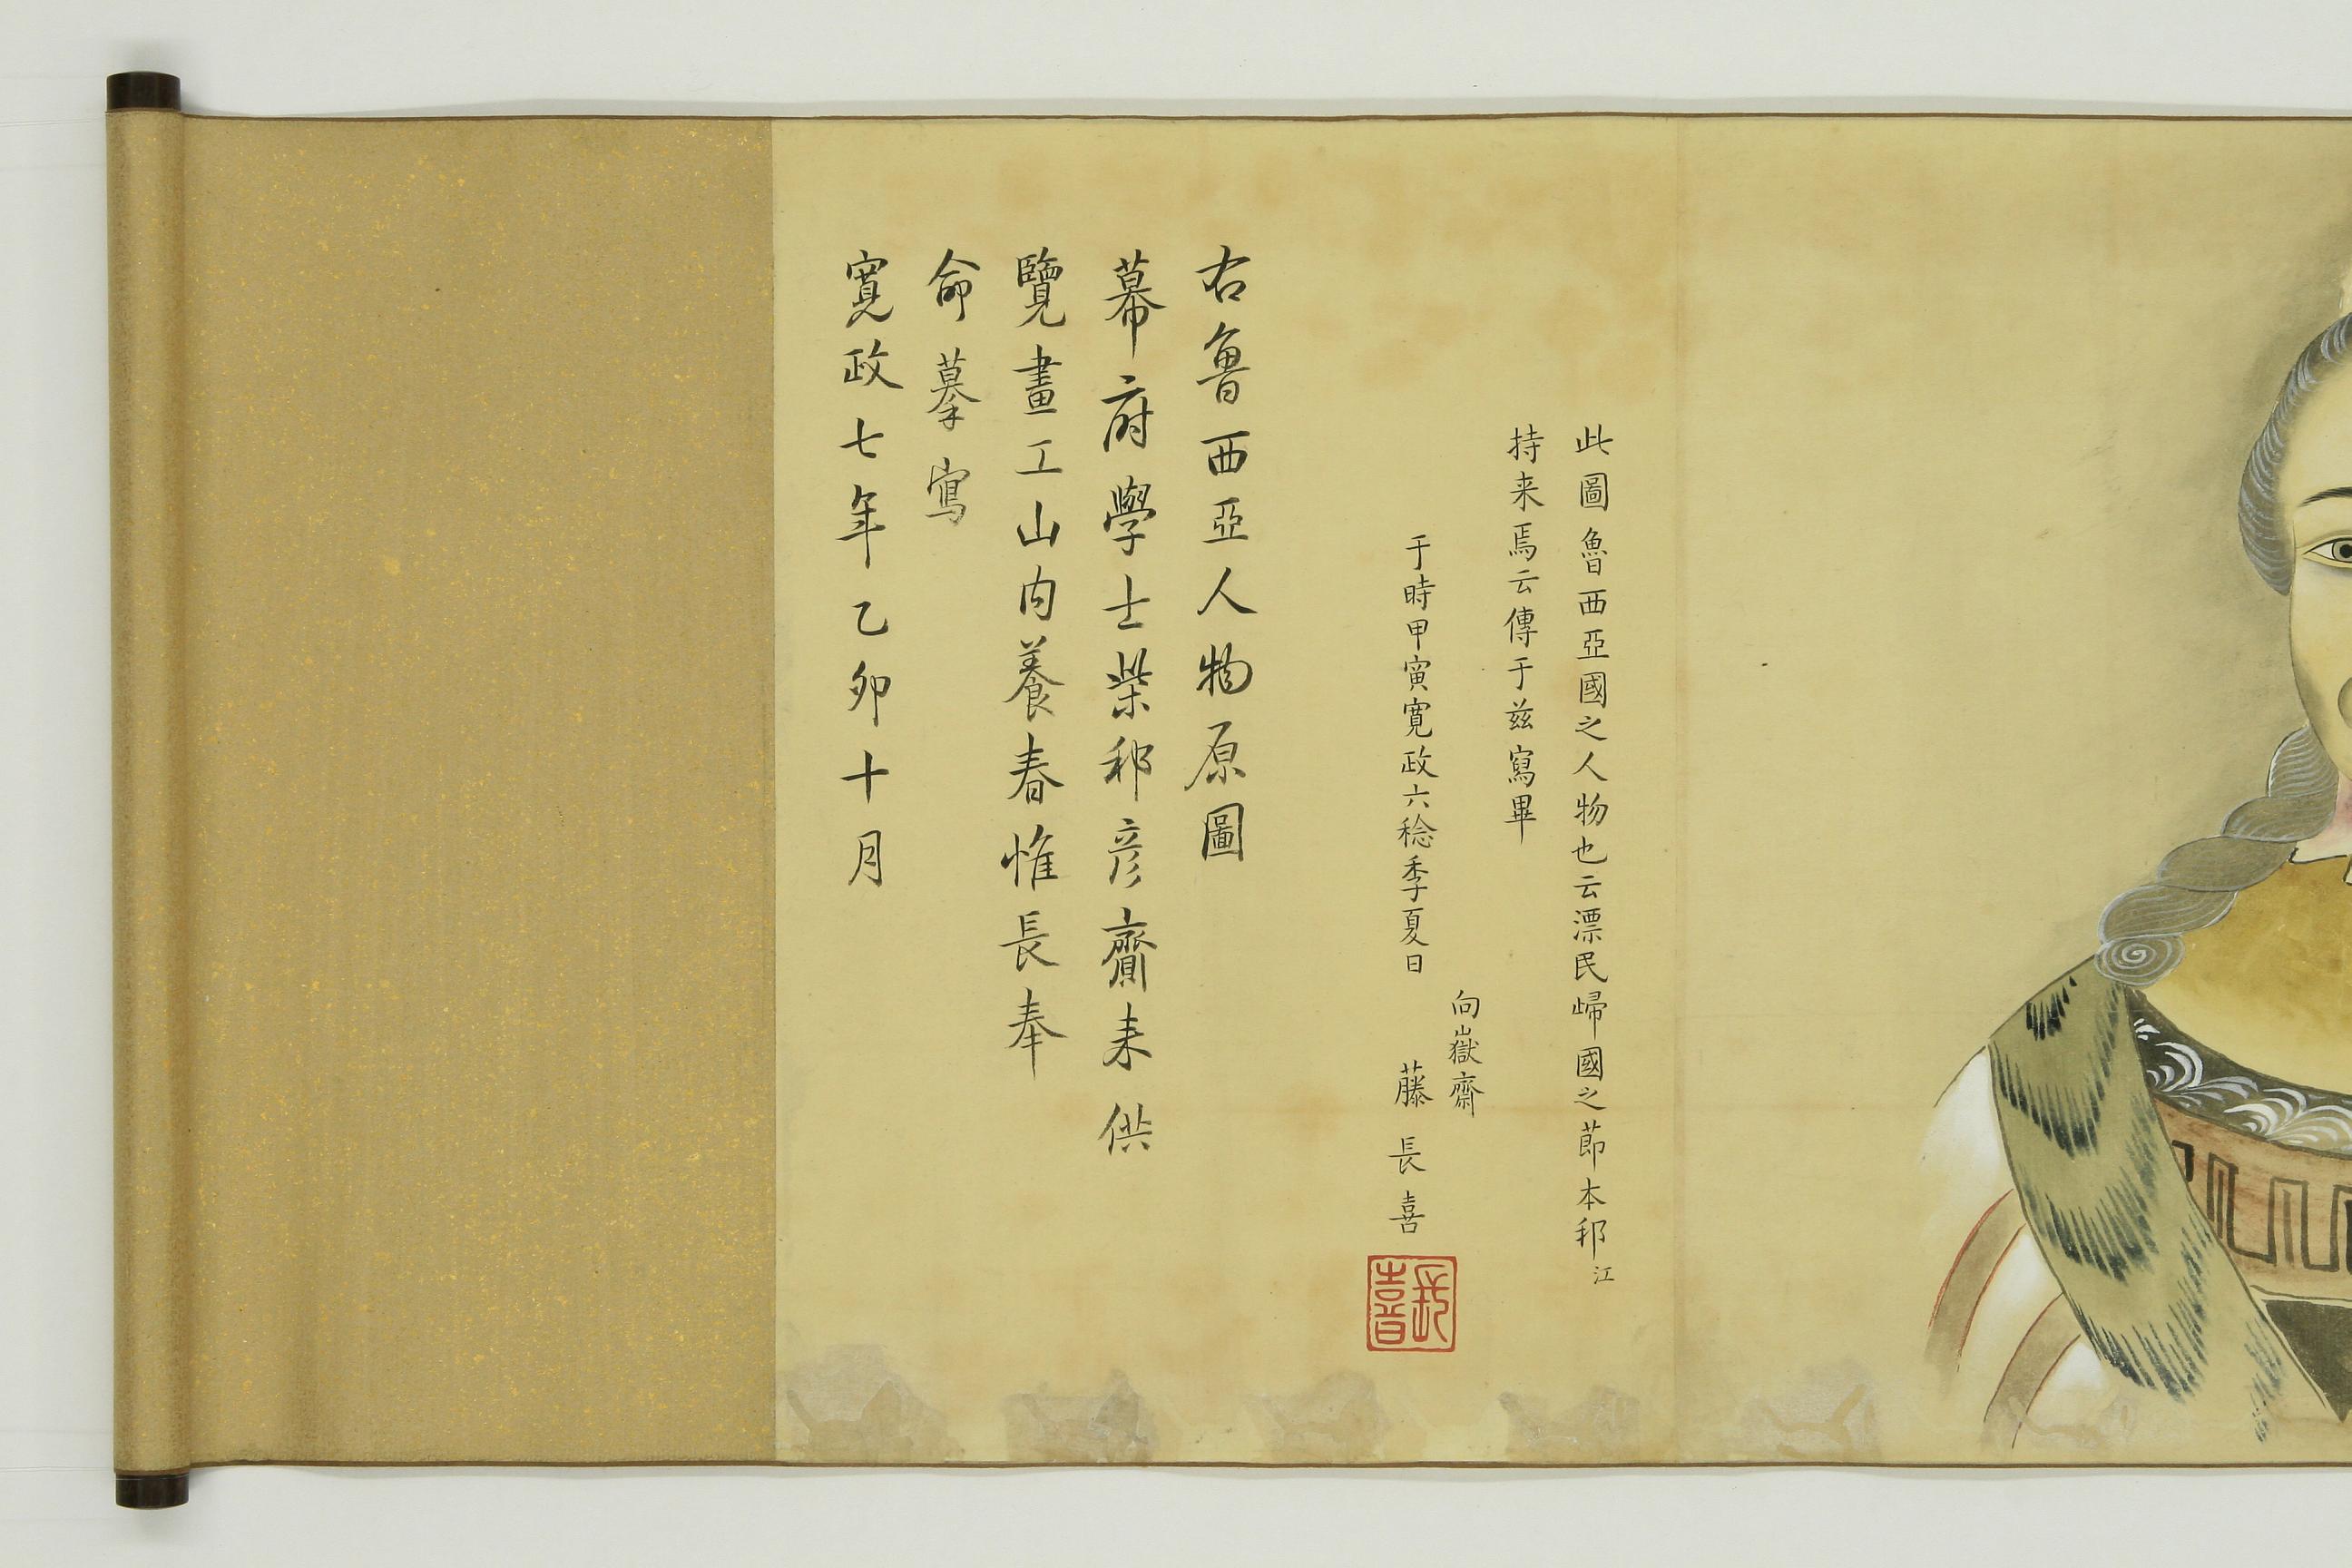 此圖魯西亞國之人物也云漂民歸國之節本邦江
持来焉云傳于茲寫畢
向嶽齋
于時甲寅寬政六稔季夏日 藤長喜
長喜
右魯西亞人物原圖
幕府學士柴邦彦齎来供
覽畫工山内養春惟長奉
命摹寫
寬政七年乙卯十月